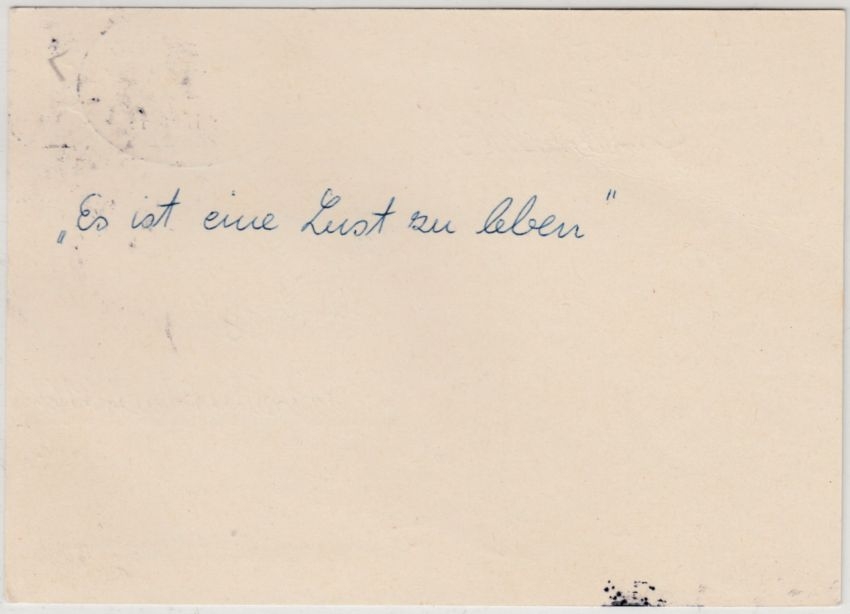 „Es ist eine Lust zu leben"